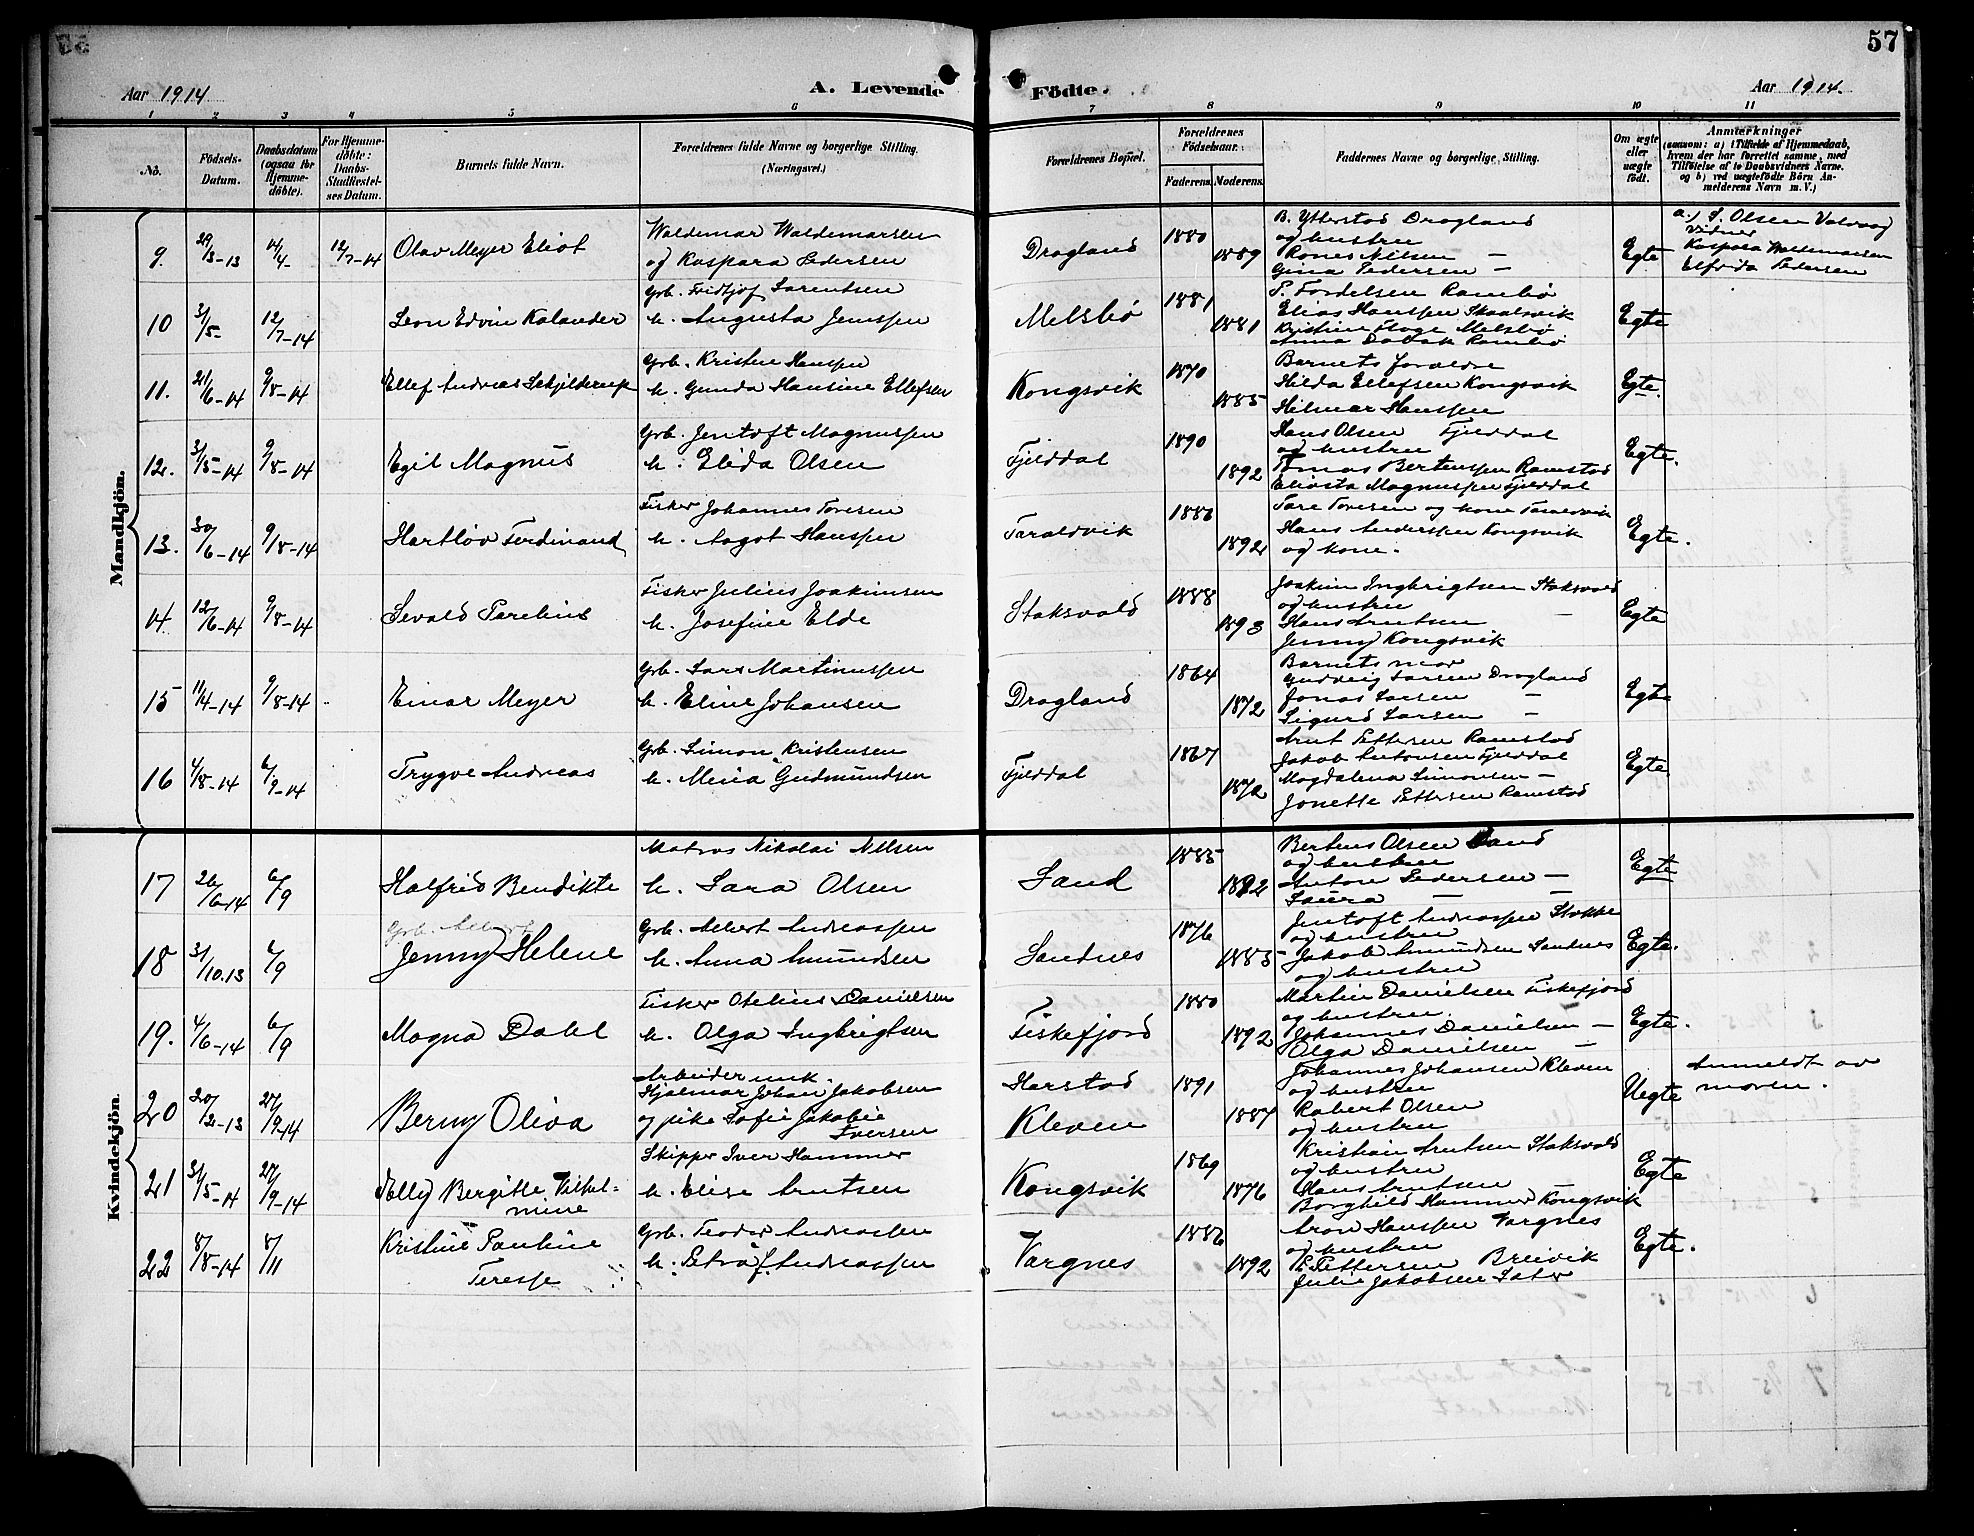 57
Aar 1914.
A. Levende
Födte.
Aar 1914.
1 2 3 4 5 6 7 8 9 10 11
No.
Födsels-
Datum.
Daabsdatum
(ogsaa for
Hjemme-
döbte).
For Hjemme-
döbte:
Daabs-
Stadfæstel-
ses Datum.
Barnets fulde Navn.
Forældrenes fulde Navne og borgerlige Stilling.
(Næringsvei.)
Forældrenes Bopæl.
Forældrenes
Födselsaar.
Faderens. Moderens.
Faddernes Navne og borgerlige Stilling.
Om ægte
eller
uægte
födt.
Anmærkninger
(saasom: a) i Tilfælde af Hjemmedaab,
hvem der har forrettet samme, med
Tilföielse af to Daabsvidners Navne,
og b) ved uægtefödte Börn An-
melderens Navn m. V.)
Mandkjön.
9. 29/3-13 14/4- 12/7-14 Olav Meyer Eliot
Waldemar Waldemarsen
og Kaspara Pedersen
Dragland 1880 1889
B. Ytterstad Dragland
og hustru
Rones Nilsen -
Gina Pedersen -
Egte
a.) S. Olsen Valvaag
Vidner
Kaspara Waldemarsen
Elfrida Pedersen
10 31/5- 12/7-14 Leon Edvin Kalander
Grb. Fridtjof Sarentsen
h. Augusta Jenssen
Melsbö 1881 1881
P. Tordelsen Rambö
Elias Hanssen Skaalsvik
Kristine Hage Melsbö
Anna Rambö
Egte
11. 21/6-14 9/8-14 Ellef Andreas Schjelderup
Grb. Kristen Hanssen
h. Gunda Hansine Ellefsen
Kongsvik 1870 1885
Barnets forældre
Hilda Ellefsen Kongsvik
Hilmar Hanssen
Egte.
12. 31/5-14 9/8-14 Egil Magnus
Grb. Jentoft Magnussen
h. Elida Olsen
Fjelddal 1890 1892
Hans Olsen Fjelddal
og hustru
Tomas Bertenssen Ramstad
Magnussen Fjelddal
Egte.
13. 30/6-14 9/8-14 Hartlöv Ferdinand
Fisker Johannes Toresen
h. Aagot Hanssen
Taraldvik 1892
Tore Toresen og kone Taraldvik
Hans Anderssen Kongsvik
og kone.
Egte.
14 12/6-14 9/8-14 Sevald Parelius
Fisker Julius Joakimsen
h. Josefine Elde
Staksvold 1888 1893
Joakim Ingbrigtsen Staksvold
og hustru
Hans Arntsen -
Jenny Kongsvik
Egte
15 11/4-14 9/8-14 Einar Meyer
Grb. Lars Martinussen
h. Eline Johansen
Dragland 1864 1872
Barnets mor
Gudveig Larsen Dragland
Jonas Larsen -
Sigurd Larsen -
Egte
16 4/8-14 6/9-14 Trygve Andreas
Grb. Simon Kristensen
h. Mina Gudmundsen
Fjelddal 1867 1872
Arnt Pettersen Ramstad
Jakob Antonsen Fjelddal
Magdalena Simonsen -
Jonette Pettersen Ramstad
Egte
Kvindekjön.
17 26/6-14 6/9 Halfrid Bendikte
Matros Nikolai Nilsen
h. Sara Olsen
Sand 1885
Bertens Olsen Sand
og hustru
Anton Pedersen -
Laura - -
Egte
Grb. Albert
18 31/10.13 6/9 Jenny Helene
Grb. Albert Andreassen
h. Anna Amundsen
Sandnes 1876 1885
Jentoft Andreassen Stokke
og hustru
Jakob Amundsen Sandnes
og hustru
Egte.
19. 4/6-14 6/9 Magna Dahl
Fisker Otelius Danielsen
h. Olga Ingbrigtsen
Fiskefjord 1880 1892
Martin Danielsen Fiskefjord
og hustru.
Johannes Danielsen -
Olga Danielsen -
Egte.
20 20/2-13 27/9-14 Berny Oliva
Arbeider unk.
Hjalmar Johan Jakobsen
og pike Sofie Jakobie
Iversen
Harstad
Kleven
1891 1887
Johannes Johansen Kleven
og hustru
Robert Olsen
og hustru
Uegte
Anmeldt av
moren.
21 31/5-14 27/9-14 Nelly Bergitte Vilhel=
mine
Skipper Iver Hammer
h. Elise Arntsen
Kongsvik 1869 1876
Kristian Arntsen Staksvold
og hustru
Hans Arntsen -
Borghild Hammer Kongsvik
Egte
22 8/8-14 8/11 Kristine Pauline
Teresse
Grb. Teodor Andreassen
h. Petra f. Andreassen
Vargnes 1886 1892
Aron Hanssen Vargnes
og hustru
P. Pettersen Breivik
Julie Jakobsen Sater
Egte.